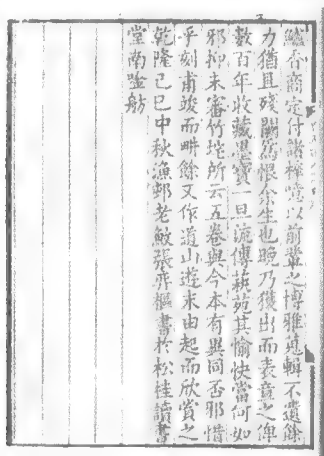 鱠香商定付諸梓噫以前輩之博雅蒐輯不遺餘
力猶且殘闕為恨余生也晚乃獲出而表章之俾
數百年收藏墨寶一旦流傳藝苑其愉快當何如
邪抑未審竹垞所云五卷與今本有異同否邪惜
乎刻甫竣而畊餘又作道山遊未由起而欣賞之
乾隆己巳中秋漁邨老敏張弈樞書於松桂讀書
堂南㙮舫